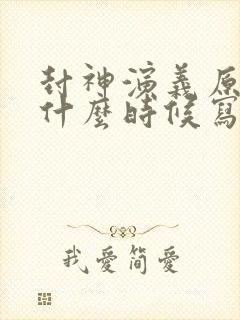 封神演義原
什麼時候寫
我愛簡愛